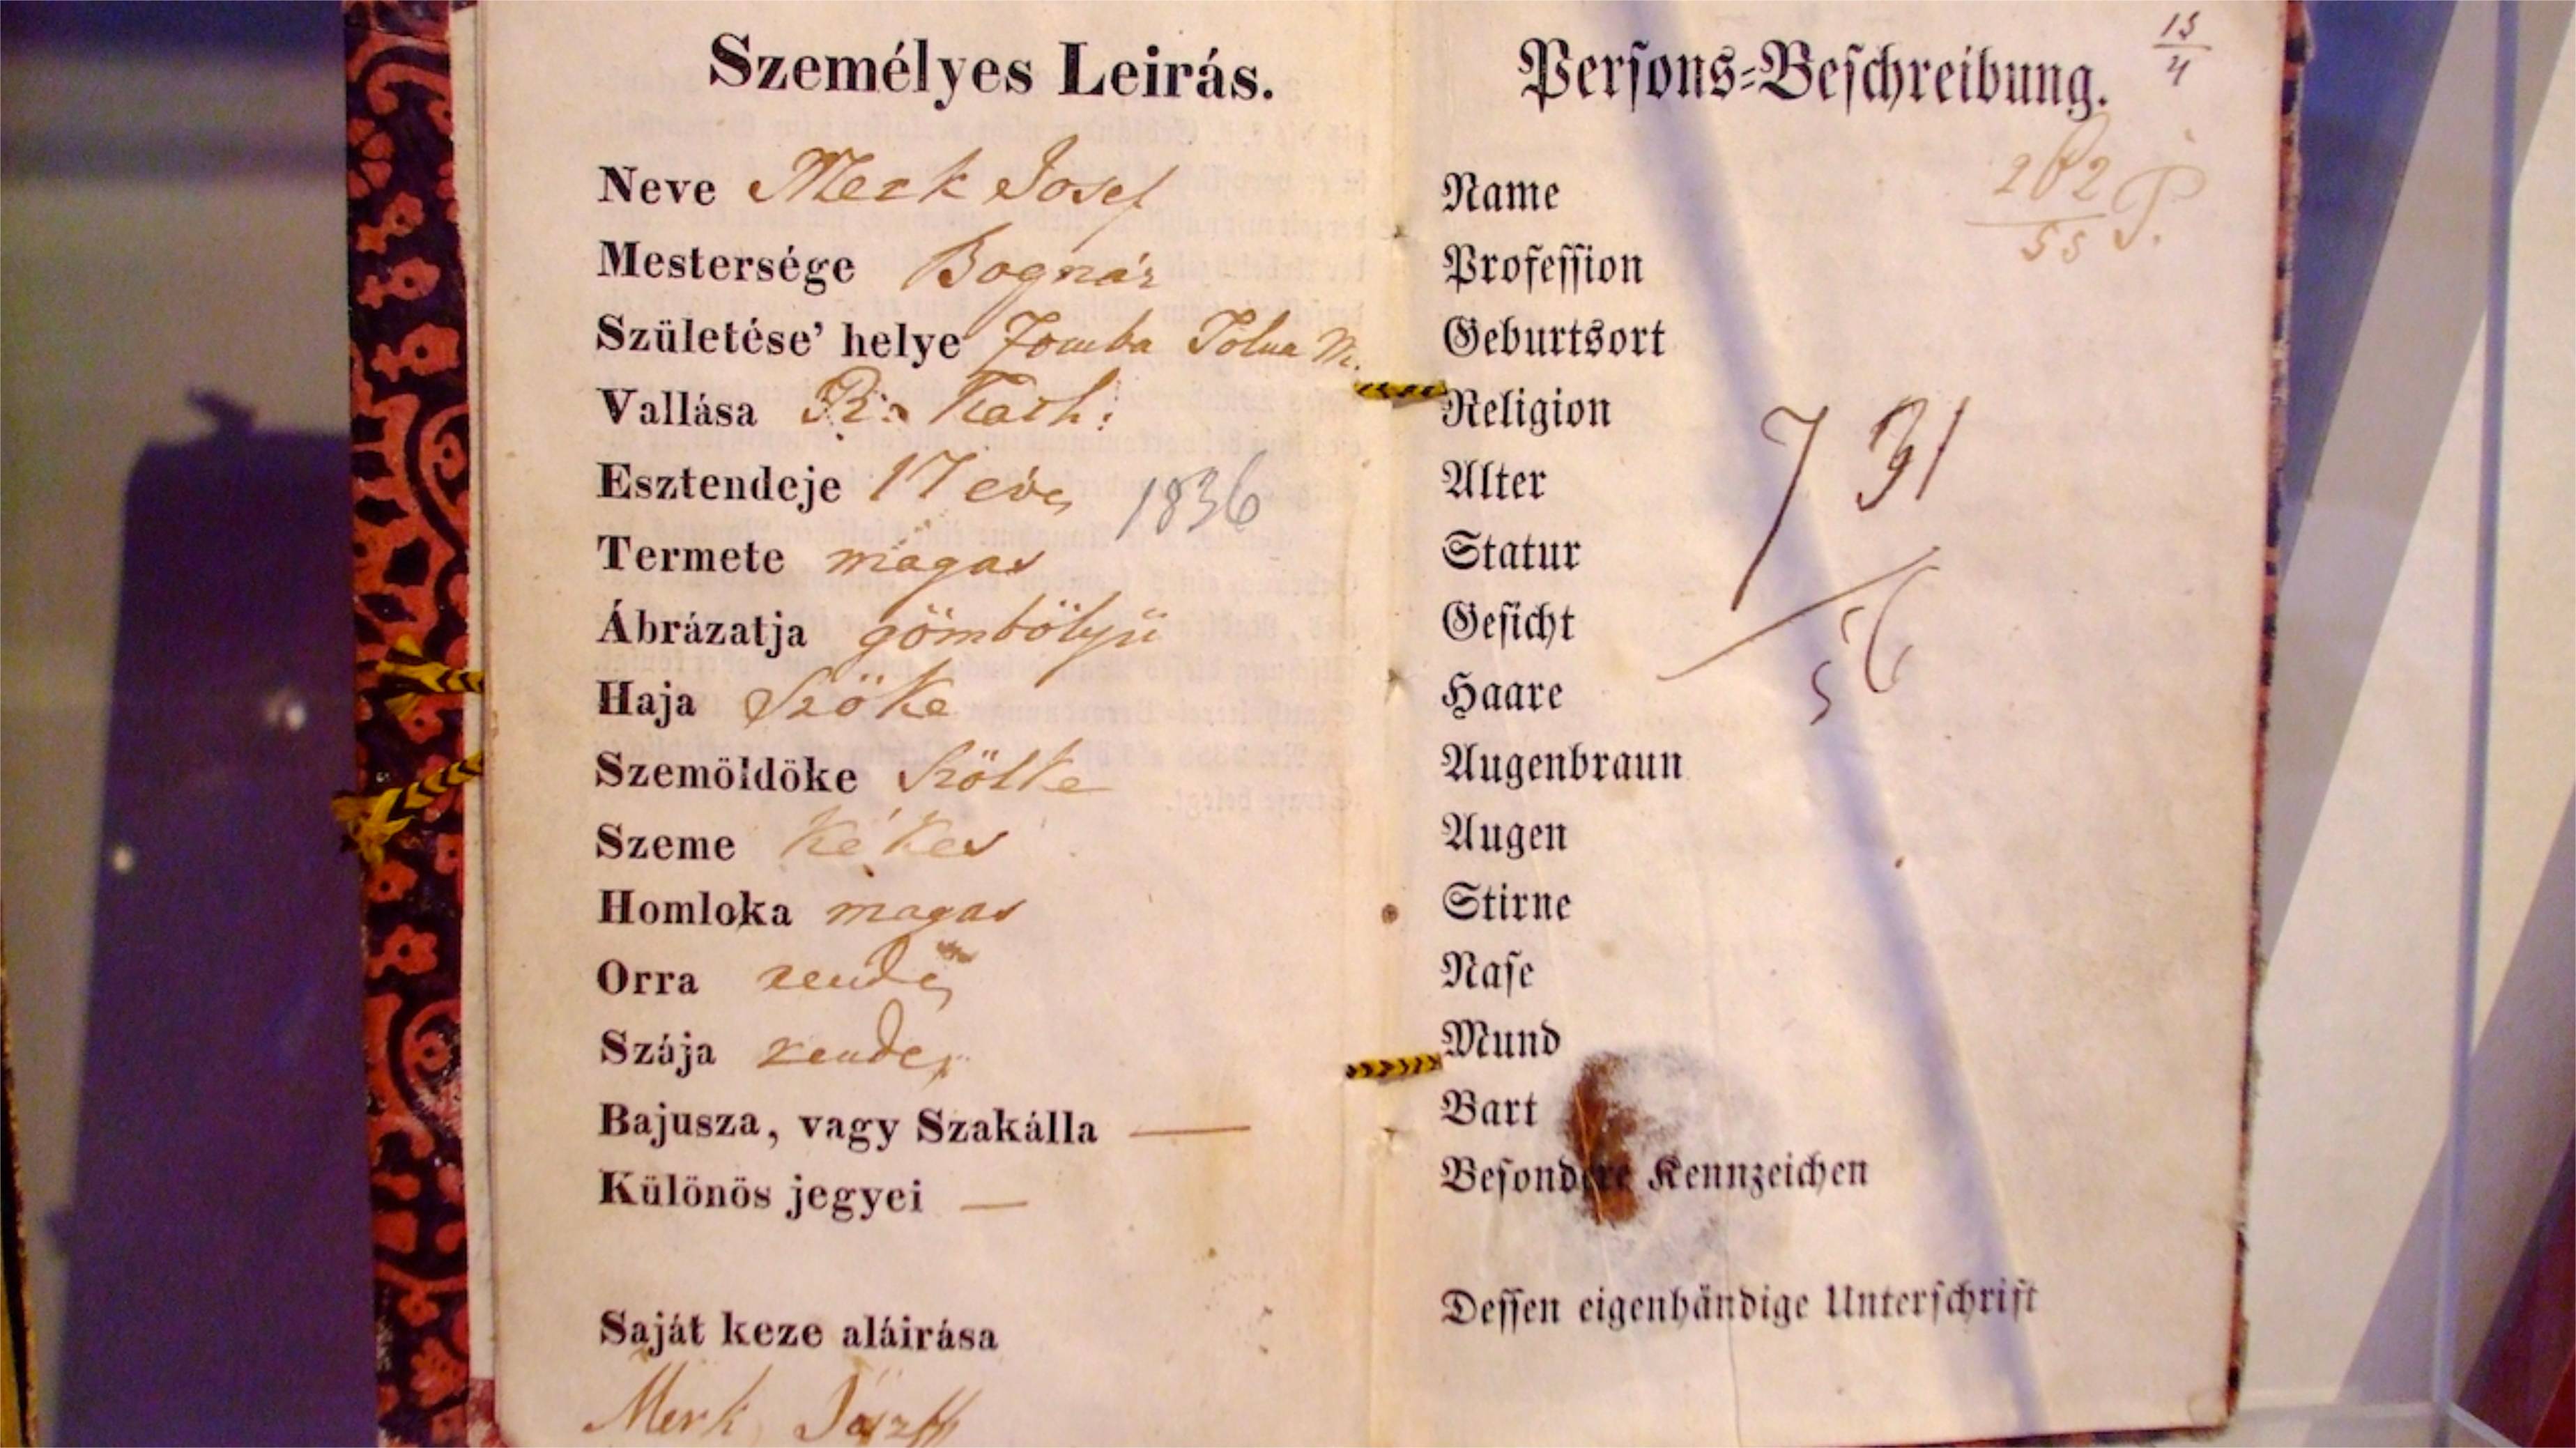 Személyes Leirás.
Neve Merk Josef
Mestersége Bognár
Születése' helye Tomba Tolna M.
Vallása R. Kath:
Esztendeje 17 éves 1836
Termete magas
Ábrázatja gömbölyü
Haja Szöke
Szemöldöke Szölke
Szeme kékes
Homloka magas
Orra rendes
Szája rendes
Bajusza, vagy Szakálla —
Különös jegyei —
Saját keze aláirása
Merk
Perſons=Beſchreibung.
Name
Profeſſion
Geburtsort
Religion
Alter
Statur
Geſicht
Haare
Augenbraun
Augen
Stirne
Naſe
Mund
Bart
Beſondere Kennzeichen
Deſſen eigenhändige Unterſchrift